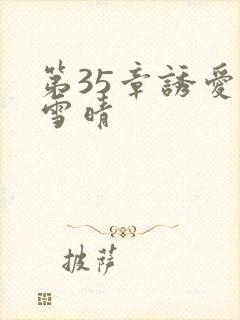 第35章誘愛
雪晴
披薩